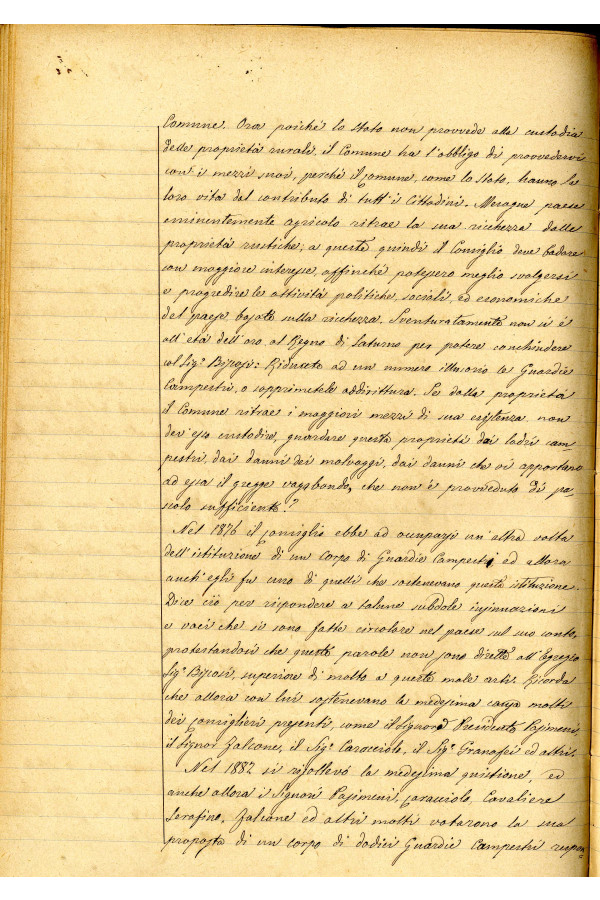 Comune. Ora poiché lo Stato non provvede alla custodia
delle proprietà rurali, il Comune ha l'obbligo di provvedervi
con i mezzi suoi, perché il Comune, come lo Stato, hanno la
loro vita dal contributo di tutt'i Cittadini. Mesagne paese
eminentemente agricolo ritrae la sua ricchezza dalle
proprietà rustiche; a queste quindi il Consiglio deve badare
con maggiore interesse, affinché potessero meglio svolgersi
e progredire le attività politiche, sociali, ed economiche
del paese, basate sulla ricchezza. Sventuratamente non si è
all'età dell'oro, al Regno di Saturno per potere conchiudere
col Sig.r : Riducete ad un numero illusorio le Guardie
Campestri, o sopprimetele addirittura. Se dalla proprietà
il Comune ritrae i maggiori mezzi di sua esistenza, non
dev'esso custodire, guardare questa proprietà dai ladri cam=
pestri, dai danni dei malvaggi, dai danni che vi apportano
ad essa il gregge vagabondo, che non è provveduto di pa
scolo sufficiente?
Nel 1876 il Consiglio ebbe ad occuparsi un'altra volta
dell'istituzione di un Corpo di Guardie Campestri ed allora
anch'egli fu uno di quelli che sostenevano questa istituzione.
Dice ciò per rispondere a talune subdole insinuazioni
e voci che si sono fatte circolare nel paese sul suo conto,
protestandosi che queste parole non sono dirette all'Egregio
Sig.r , superiore di molto a queste male arti. Ricorda
che allora con lui sostenevano la medesima causa molti
dei Consiglieri presenti, come il Signor Presidente Pasimeni,
il Signor Falcone, il Sig.r Caracciolo, il Sig.r Granafei ed altri.
Nel 1882 si risollevò la medesima quistione, ed
anche allora i Signori Pasimeni, Caracciolo, Cavaliere
Serafino, Falcone ed altri molti votarono la sua
proposta di un corpo di dodici Guardie Campestri respon=